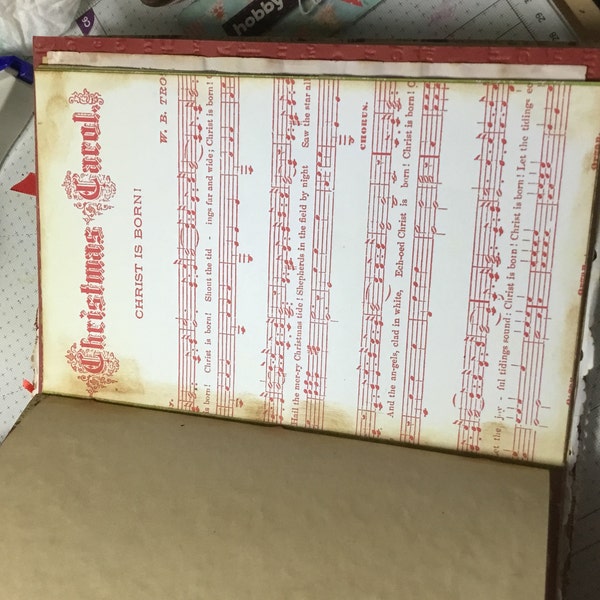 hobby
Christmas Carol.
CHRIST IS BORN!
W. B. TRO
is born! Christ is born! Shout the tid - ings far and wide; Christ is born!
Hail the mer-ry Christmas tide! Shepherds in the field by night Saw the star all
CHORUS.
And the an-gels, clad in white, Ech-oed Christ is born! Christ is born!
ful tidings sound: Christ is born! Christ is born! Let the tidings
Let the